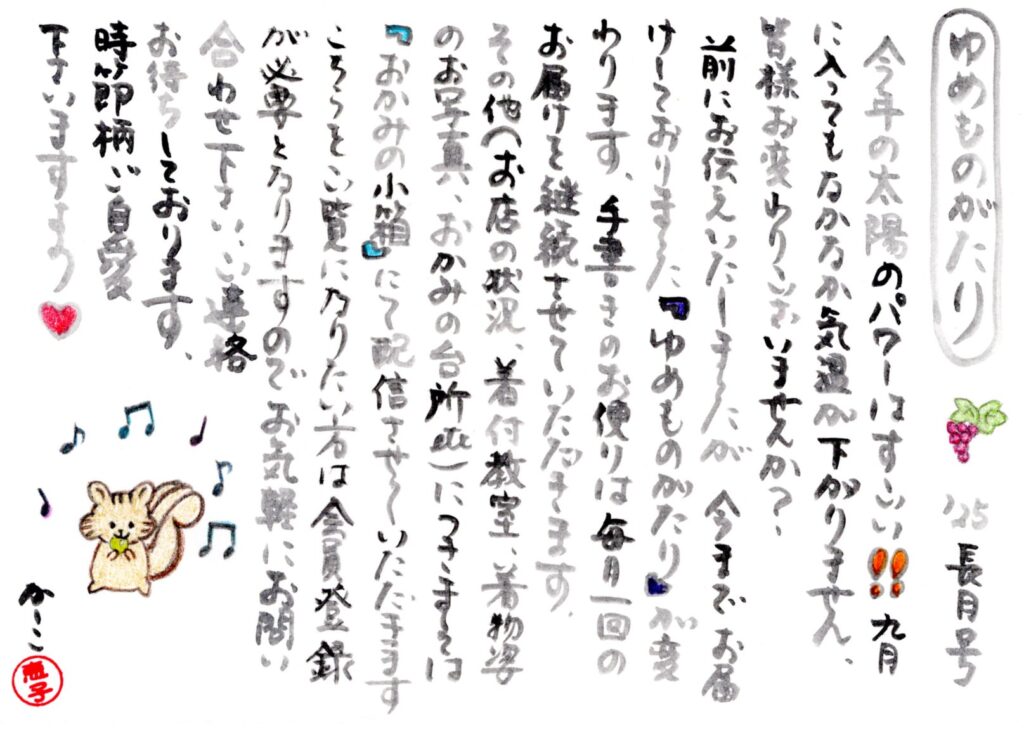 ゆめものがたり
'25 長月号
今年の太陽のパワーはすごい!! 九月
に入ってもなかなか気温が下がりません、
皆様お変わりございませんか?
前にお伝えいたしましたが 今までお届
けしておりました『ゆめものがたり』が変
わります、手書きのお便りは毎月一回の
お届けを継続させていただきます、
その他(お店の状況、着付教室、着物姿
のお写真、おかみの台所etc)につきましては
『おかみの小箱』にて配信させていただきます
こちらをご覧になりたい方は会員登録
が必要となりますのでお気軽にお問い
合わせ下さい、ご連絡
お待ちしております、
時節柄ご自愛
下さいますよう
かーこ